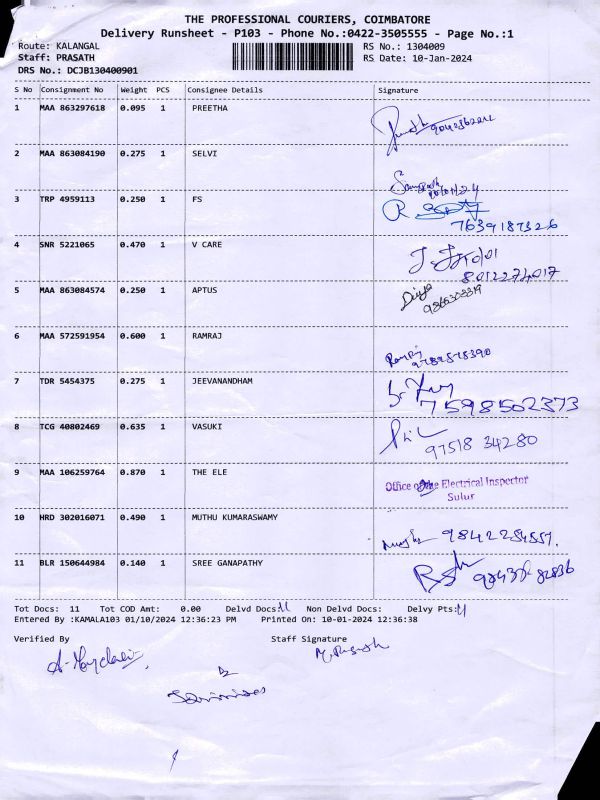 THE PROFESSIONAL COURIERS, COIMBATORE
Delivery Runsheet - P103 - Phone No.:0422-3505555 - Page No.:1
Route: KALANGAL RS No.: 1304009
Staff: PRASATH RS Date: 10-Jan-2024
DRS No.: DCJB130400901
S No Consignment No Weight PCS Consignee Details Signature
1 MAA 863297618 0.095 1 PREETHA
2 MAA 863084190 0.275 1 SELVI
3 TRP 4959113 0.250 1 FS
7639187326
4 SNR 5221065 0.470 1 V CARE
8012274017
5 MAA 863084574 0.250 1 APTUS
Divya
6 MAA 572591954 0.600 1 RAMRAJ
Ramraj
7 TDR 5454375 0.275 1 JEEVANANDHAM
7598502373
8 TCG 40802469 0.635 1 VASUKI
97518 34280
9 MAA 106259764 0.870 1 THE ELE
Office of the Electrical Inspector
Sulur
10 HRD 302016071 0.490 1 MUTHU KUMARASWAMY
9842254557.
11 BLR 150644984 0.140 1 SREE GANAPATHY
Tot Docs: 11 Tot COD Amt: 0.00 Delvd Docs: 11 Non Delvd Docs: Delvy Pts: 11
Entered By :KAMALA103 01/10/2024 12:36:23 PM Printed On: 10-01-2024 12:36:38
Verified By Staff Signature